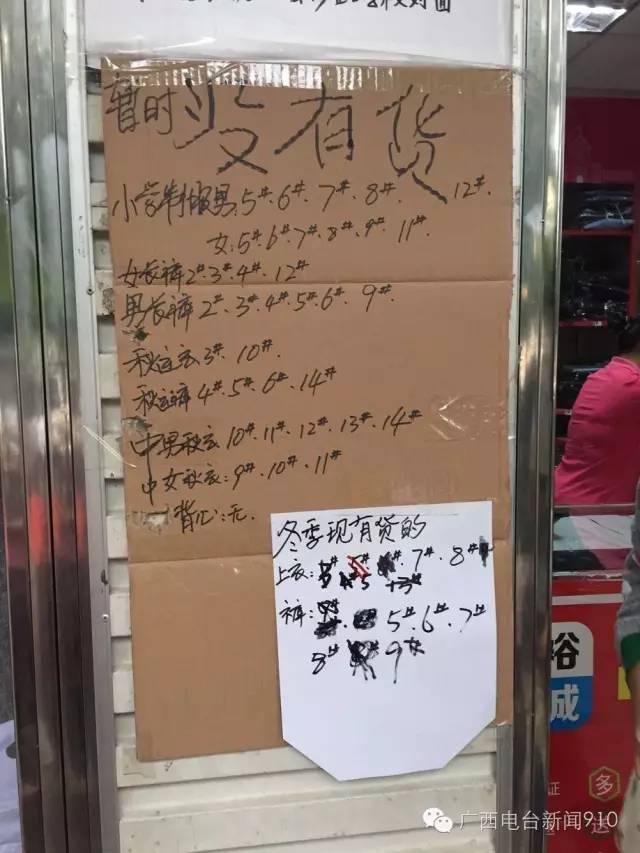 暂时没有货
小学制服男:5#.6#.7#.8#. 12#.
女:5#.6#.7#.8#.9#.11#.
女长裤2#.3#.4#.12#
男长裤2#.3#.4#.5#.6#.9#.
秋运衣3#.10#.
秋运裤4#.5#.6#.14#
中男秋衣10#.11#.12#.13#.14#
中女秋衣:9#.10#.11#
小背心:无.
冬季现有货的
上衣: .7#.8#
裤: 5#.6#.7#
8# 9#
裕
成
证 多
送
广西电台新闻910